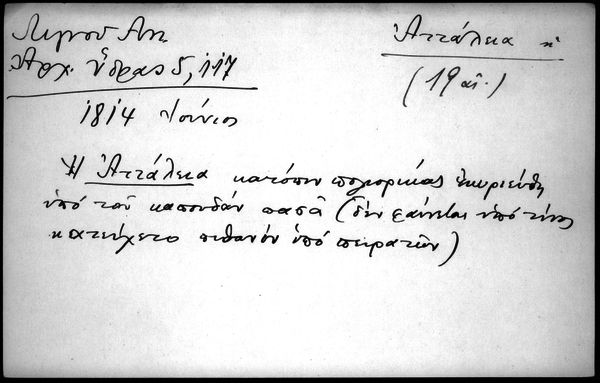 Λιγνού Αντ.
Ἀρχ. Ὕδρας 5, 117
1814 Ἰούνιος
Ἀττάλεια κ
(19 αἰ.)
Ἡ Ἀττάλεια κατόπιν πολιορκίας ἐκυριεύθη
ὑπό τοῦ καπουδάν πασᾶ (δέν φαίνεται ὑπό τίνος
κατείχετο πιθανόν ὑπό πειρατῶν)